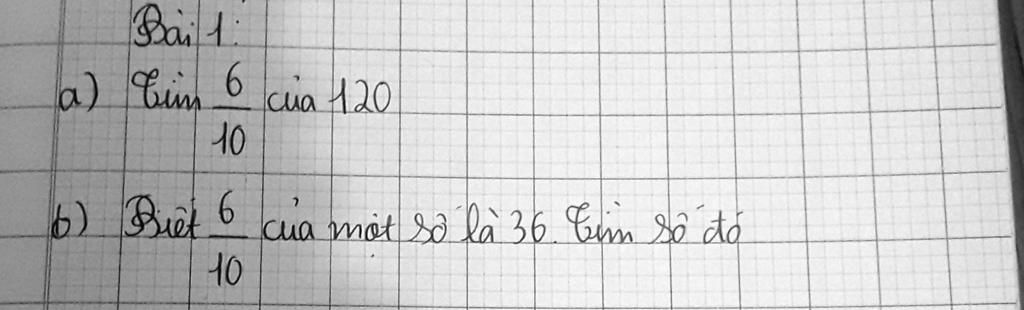 Bài 1:
a) Tìm 6/10 của 120
b) Biết 6/10 của một số là 36. Tìm số đó